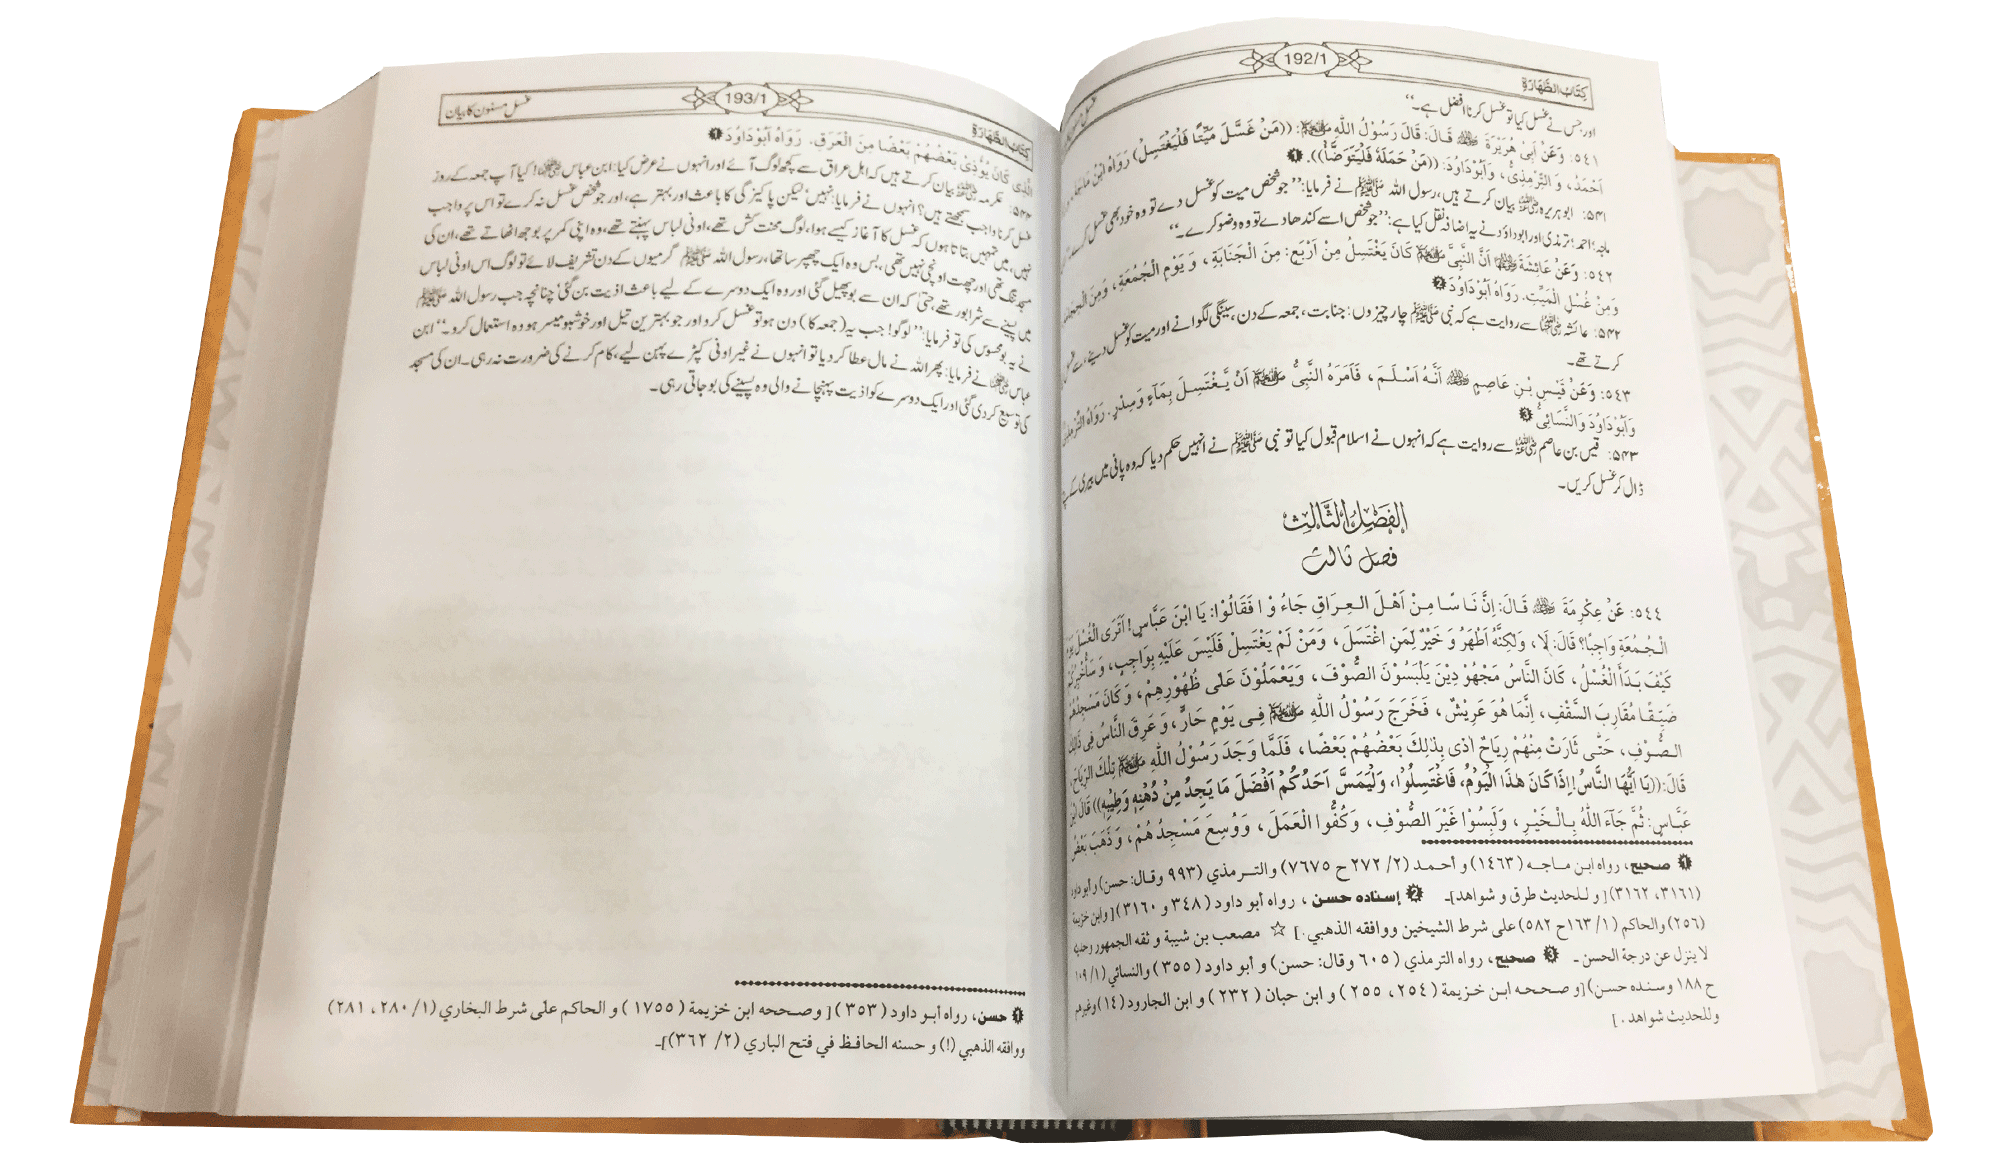 كِتَابُ الطَّهَارَةِ
192/1
اور جس نے غسل کیا تو غسل کرنا افضل ہے۔‘‘
٥٤١: وَعَنْ اَبِیْ هُرَيْرَةَ ؓ قَالَ: قَالَ رَسُوْلُ اللّٰهِ ﷺ: ((مَنْ غَسَّلَ مَيِّتًا فَلْيَغْتَسِلْ)) رَوَاهُ ابْنُ مَاجَهْ،
اَحْمَدُ، وَالتِّرْمِذِىُّ، وَاَبُوْدَاوٗدَ: ((مَنْ حَمَلَهٗ فَلْيَتَوَضَّأْ)). ❶
۵۴۱: ابو ہریرہ ؓ بیان کرتے ہیں، رسول اللہ ﷺ نے فرمایا: ’’جو شخص میت کو غسل دے تو وہ خود بھی غسل کرے۔
ماجہ؛ احمد؛ ترمذی اور ابو داود نے یہ اضافہ نقل کیا ہے: ’’جو شخص اسے کندھا دے تو وہ وضو کرے۔‘‘
٥٤٢: وَعَنْ عَائِشَةَ ؓ اَنَّ النَّبِیَّ ﷺ كَانَ يَغْتَسِلُ مِنْ اَرْبَعٍ: مِنَ الْجَنَابَةِ، وَيَوْمِ الْجُمُعَةِ، وَمِنَ الْحِجَامَةِ،
وَمِنْ غُسْلِ الْمَيِّتِ. رَوَاهُ اَبُوْدَاوٗدَ ❷
۵۴۲: عائشہ ؓ سے روایت ہے کہ نبی ﷺ چار چیزوں: جنابت، جمعہ کے دن، سینگی لگوانے اور میت کو غسل دینے سے غسل
کرتے تھے۔
٥٤٣: وَعَنْ قَيْسِ بْنِ عَاصِمٍ ؓ اَنَّهٗ اَسْلَمَ، فَاَمَرَهُ النَّبِیُّ ﷺ اَنْ يَّغْتَسِلَ بِمَاءٍ وَسِدْرٍ. رَوَاهُ التِّرْمِذِىُّ
وَاَبُوْدَاوٗدَ وَالنَّسَائِىُّ ❸
۵۴۳: قیس بن عاصم ؓ سے روایت ہے کہ انہوں نے اسلام قبول کیا تو نبی ﷺ نے انہیں حکم دیا کہ وہ پانی میں بیری کے پتے
ڈال کر غسل کریں۔
اَلْفَصْلُ الثَّالِثُ
فصل ثالث
٥٤٤: عَنْ عِكْرِمَةَ ؓ قَالَ: اِنَّ نَاسًا مِنْ اَهْلِ الْعِرَاقِ جَاءُوْا فَقَالُوْا: يَا ابْنَ عَبَّاسٍ! اَتَرَى الْغُسْلَ يَوْمَ
الْجُمُعَةِ وَاجِبًا؟ قَالَ: لَا، وَلٰكِنَّهٗ اَطْهَرُ وَخَيْرٌ لِمَنِ اغْتَسَلَ، وَمَنْ لَمْ يَغْتَسِلْ فَلَيْسَ عَلَيْهِ بِوَاجِبٍ، وَسَاُخْبِرُكُمْ
كَيْفَ بَدَأَ الْغُسْلُ، كَانَ النَّاسُ مَجْهُوْدِيْنَ يَلْبَسُوْنَ الصُّوْفَ، وَيَعْمَلُوْنَ عَلٰى ظُهُوْرِهِمْ، وَكَانَ مَسْجِدُهُمْ
ضَيِّقًا مُقَارِبَ السَّقْفِ، اِنَّمَا هُوَ عَرِيْشٌ، فَخَرَجَ رَسُوْلُ اللّٰهِ ﷺ فِىْ يَوْمٍ حَارٍّ، وَعَرِقَ النَّاسُ فِىْ ذٰلِكَ
الصُّوْفِ، حَتّٰى ثَارَتْ مِنْهُمْ رِيَاحٌ اٰذٰى بِذٰلِكَ بَعْضُهُمْ بَعْضًا، فَلَمَّا وَجَدَ رَسُوْلُ اللّٰهِ ﷺ تِلْكَ الرِّيَاحَ،
قَالَ: ((يَا اَيُّهَا النَّاسُ! اِذَا كَانَ هٰذَا الْيَوْمُ، فَاغْتَسِلُوْا، وَلْيَمَسَّ اَحَدُكُمْ اَفْضَلَ مَا يَجِدُ مِنْ دُهْنِهٖ وَطِيْبِهٖ)) قَالَ ابْنُ
عَبَّاسٍ: ثُمَّ جَآءَ اللّٰهُ بِالْخَيْرِ، وَلَبِسُوْا غَيْرَ الصُّوْفِ، وَكُفُّوا الْعَمَلَ، وَوُسِعَ مَسْجِدُهُمْ، وَذَهَبَ بَعْضُ
❶ صحيح، رواه ابن ماجه (١٤٦٣) و أحمد (٢/ ٢٧٢ ح ٧٦٧٥) والترمذي (٩٩٣ وقال: حسن) و أبو داود
(٣١٦١، ٣١٦٢) [و للحديث طرق و شواهد]۔ ❷ إسناده حسن، رواه أبو داود (٣٤٨ و ٣١٦٠) [وابن خزيمة
(٢٥٦) والحاكم (١/ ١٦٣ ح ٥٨٢) على شرط الشيخين ووافقه الذهبي.] ☆ مصعب بن شيبة و ثقه الجمهور وحديثه
لا ينزل عن درجة الحسن۔ ❸ صحيح، رواه الترمذي (٦٠٥ وقال: حسن) و أبو داود (٣٥٥) والنسائي (١/ ١٠٩
ح ١٨٨ وسنده حسن) [و صححه ابن خزيمة (٢٥٤، ٢٥٥) و ابن حبان (٢٣٢) و ابن الجارود (١٤) وغيرهم
وللحديث شواهد.]
كِتَابُ الطَّهَارَةِ
193/1
غسل مسنون کا بیان
الَّذِىْ كَانَ يُؤْذِىْ بَعْضُهُمْ بَعْضًا مِنَ الْعَرَقِ. رَوَاهُ اَبُوْدَاوٗدَ ❶
۵۴۴: عکرمہ ؓ بیان کرتے ہیں کہ اہل عراق سے کچھ لوگ آئے اور انہوں نے عرض کیا: ابن عباس ؓ! کیا آپ جمعہ کے روز
غسل کرنا واجب سمجھتے ہیں؟ انہوں نے فرمایا: نہیں، لیکن پاکیزگی کا باعث اور بہتر ہے، اور جو شخص غسل نہ کرے تو اس پر واجب
نہیں، میں تمہیں بتاتا ہوں کہ غسل کا آغاز کیسے ہوا، لوگ محنت کش تھے، اونی لباس پہنتے تھے، وہ اپنی کمر پر بوجھ اٹھاتے تھے، ان کی
مسجد تنگ تھی اور چھت اونچی نہیں تھی، بس وہ ایک چھپر سا تھا، رسول اللہ ﷺ گرمیوں کے دن تشریف لائے تو لوگ اس اونی لباس
میں پسینے سے شرابور تھے، حتیٰ کہ ان سے بو پھیل گئی اور وہ ایک دوسرے کے لیے باعث اذیت بن گئی؛ چنانچہ جب رسول اللہ ﷺ
نے یہ بو محسوس کی تو فرمایا: ’’لوگو! جب یہ (جمعہ کا) دن ہو تو غسل کرو اور جو بہترین تیل اور خوشبو میسر ہو وہ استعمال کرو۔‘‘ ابن
عباس ؓ نے فرمایا: پھر اللہ نے مال عطا کر دیا تو انہوں نے غیر اونی کپڑے پہن لیے، کام کرنے کی ضرورت نہ رہی۔ ان کی مسجد
کی توسیع کر دی گئی اور ایک دوسرے کو اذیت پہنچانے والی وہ پسینے کی بو جاتی رہی۔
❶ حسن، رواه أبو داود (٣٥٣) [وصححه ابن خزيمة (١٧٥٥) و الحاكم على شرط البخاري (١/ ٢٨٠، ٢٨١)
ووافقه الذهبي (!) و حسنه الحافظ في فتح الباري (٢/ ٣٦٢)]۔